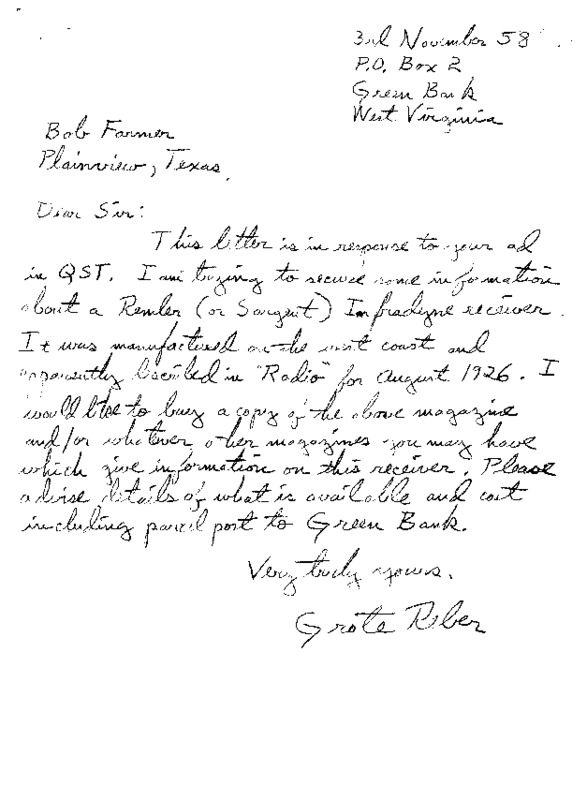 3rd November 58
P.O. Box 2
Green Bank
West Virginia
Bob Farmer
Plainview, Texas.
Dear Sir:
This letter is in response to your ad
in QST. I am trying to secure some information
about a Remler (or Sargent) Infradyne receiver.
It was manufactured on the west coast and
apparently described in "Radio" for August 1926. I
would like to buy a copy of the above magazine
and/or whatever other magazines you may have
which give information on this receiver. Please
advise details of what is available and cost
including parcel post to Green Bank.
Very truly yours.
Grote Reber